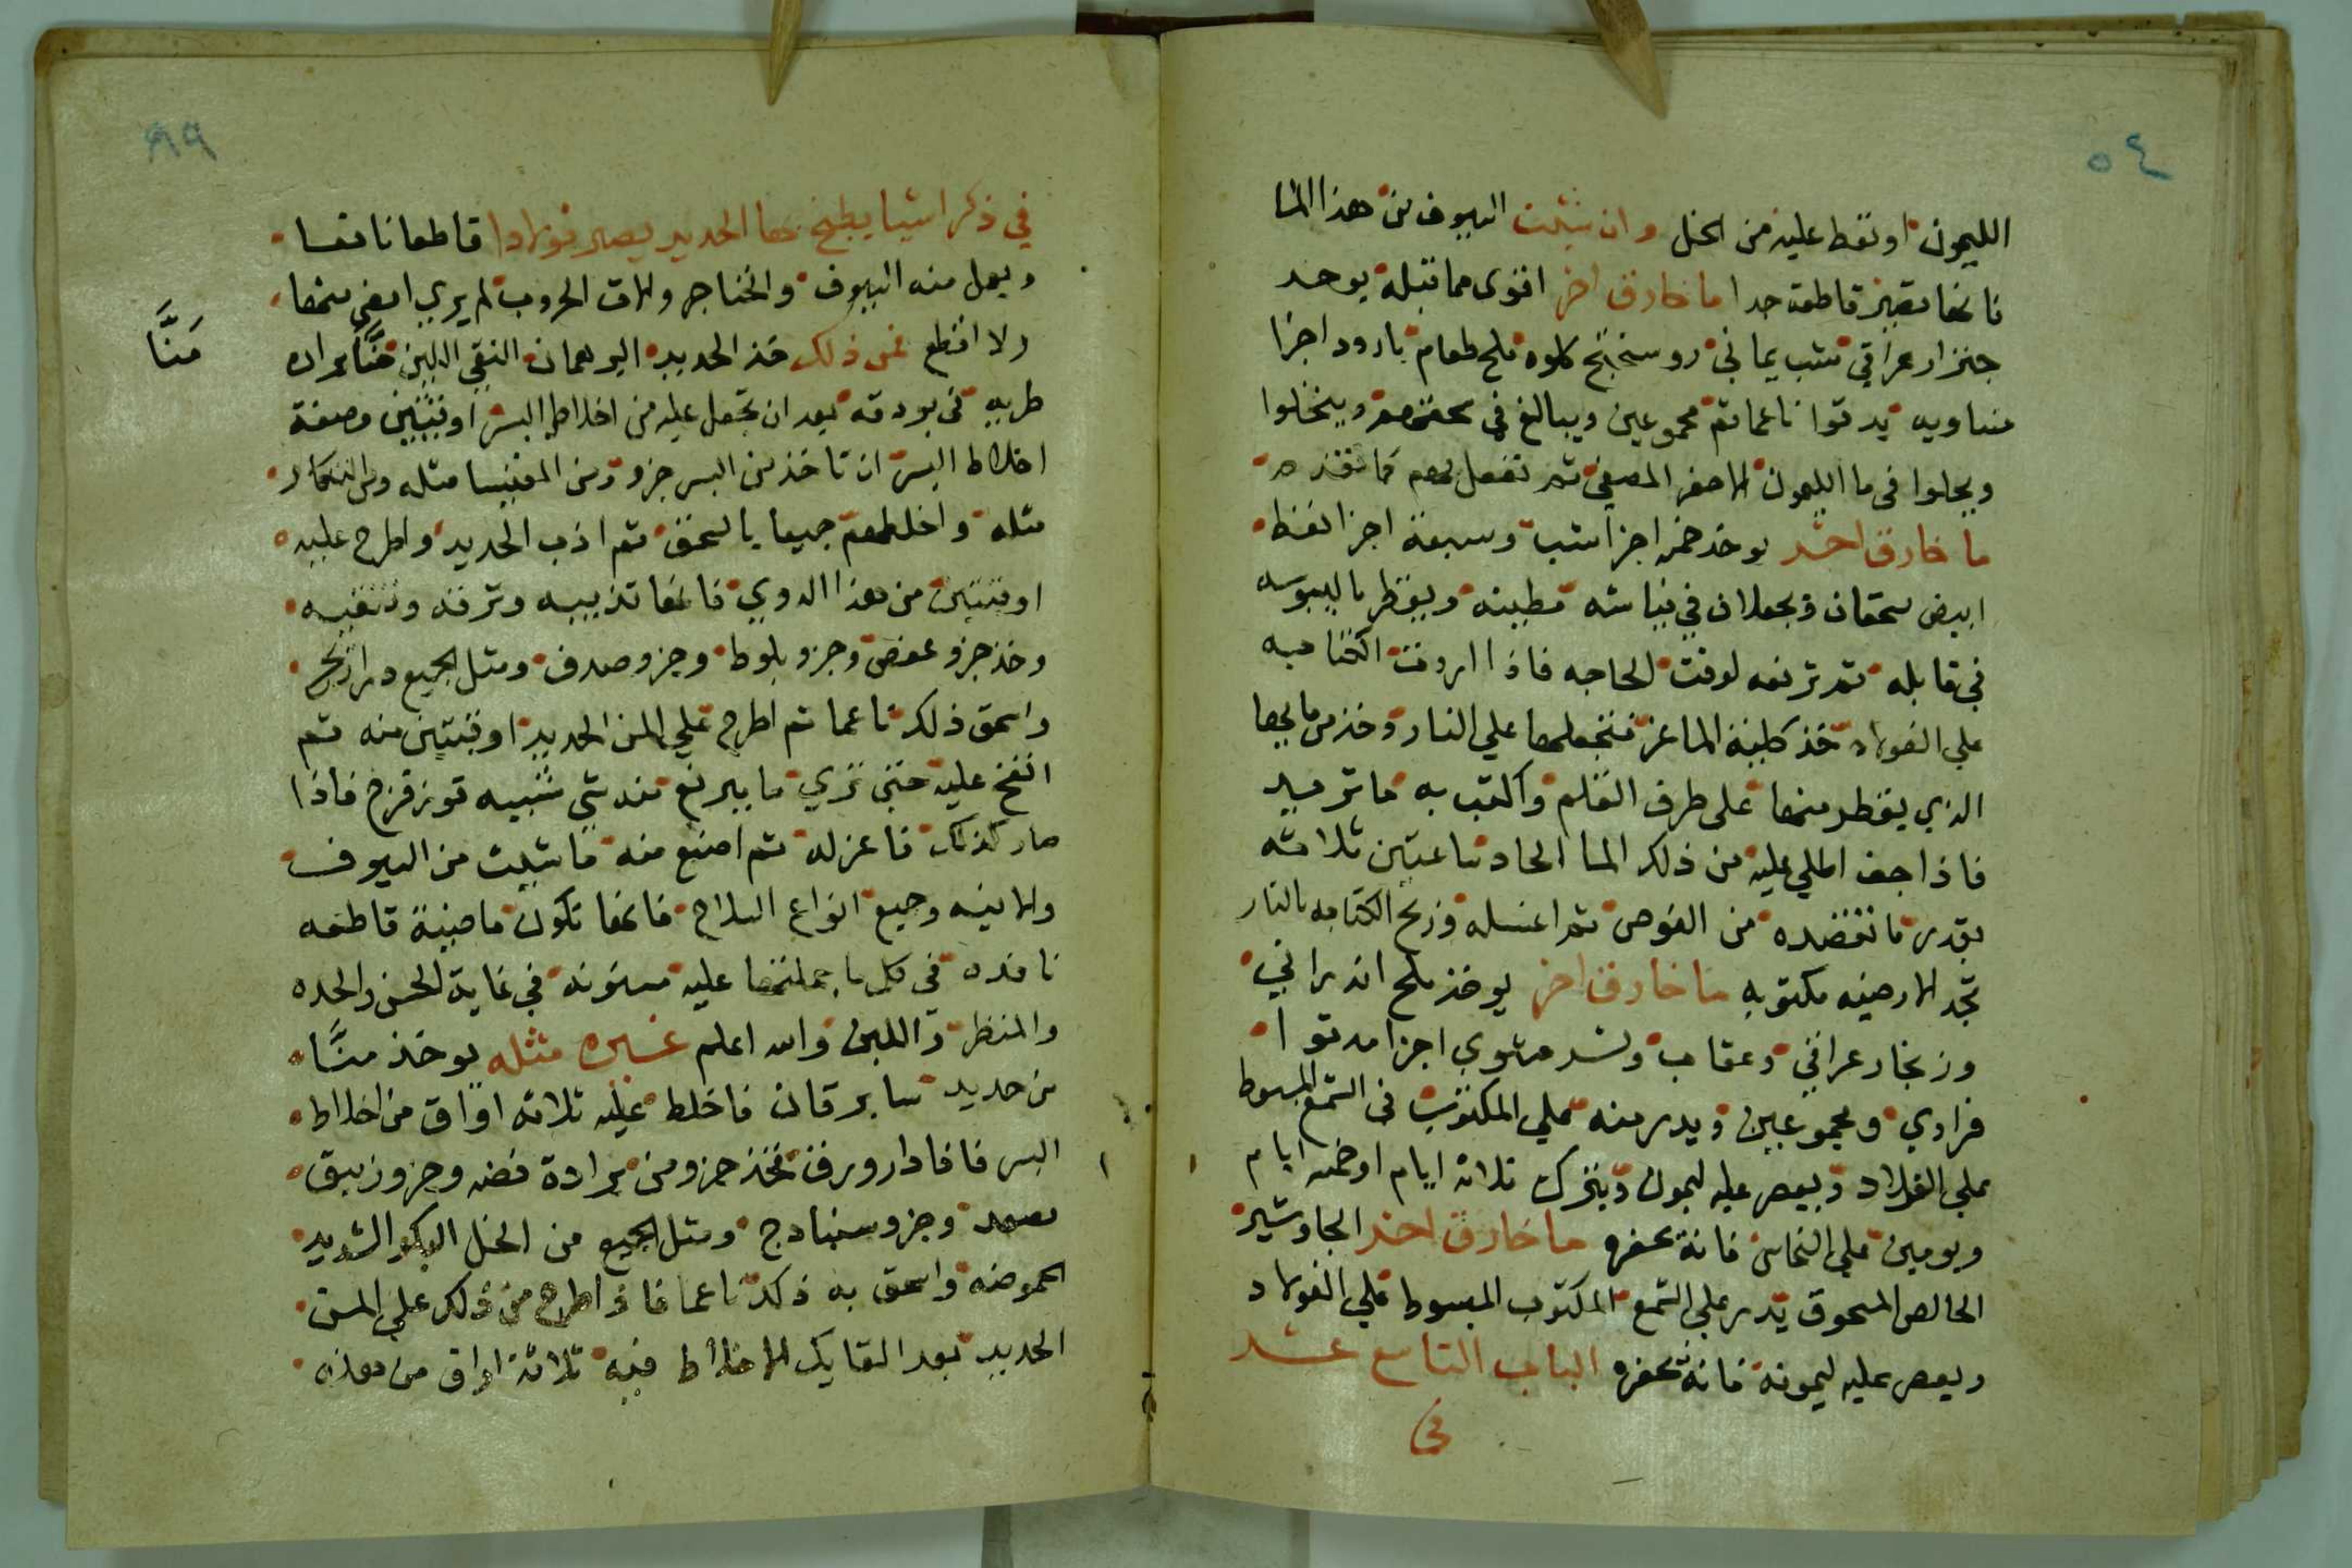 ٥٤
الليمون اونقط عليه من الخل وان شئت السيوف من هذا الما
فانها تصير قاطعة جدا ما خارق اخر اقوى مما قبله يوخد
جنزار عراقي شب يماني روسختج كلوه ملح طعام بارود اجزا
متساويه يدقوا ناعما ثم مجموعين ويبالغ في سحقهم وينخلوا
ويحلوا في ما الليمون الاصفر المصفي ثم تفعل بهم كما تقدم
ما خارق اخر يوخذ خمسة اجزا شب وسبعة اجزا نفط
ابيض يسحقان ويجعلان في مطينه ويقطر باليبوسه
في قابله ثم ترفعه لوقت الحاجه فاذا اردت الكتابه
علي الفولاد خذ كلية الماعز فتجعلها علي النار وخذ من مايها
الذي يقطر منها على طرف القلم واكتب به ما تريد
فاذا جف اطلي عليه من ذلك الما الحاد ساعتين ثلاثه
بقدر ما تقصده من الغوص ثم اغسله وزيح الكتابه بالنار
تجد الارضيه مكتوبه ما خارق اخر يوخذ ملح اندراني
وزنجار عراقي وعقاب مشوي اجزا يدقوا
فرادي ومجموعين ويدر منه علي المكتوب في الشمع المبسوط
علي الفولاد ويعصر عليه ليمون ويترك ثلاثة ايام او خمسه ايام
ويومين علي النحاس فانه يحفره ما خارق اخر الجاوشير
الخالص المسحوق يدر علي الشمع المكتوب المبسوط علي الفولاد
ويعصر عليه ليمونه فانه يحفره الباب التاسع عشر
في
في ذكر اشيا يطبخ بها الحديد يصير فولادا قاطعا نافسا
ويعمل منه السيوف والخناجر والات الحروب لم يري امضي منها
ولا اقطع فمن ذلك خذ الحديد البرهمان النقي اللين منًّا براده
منًّا
طريه في بودقه بعد ان تجعل عليه من اخلاط البسر اوقيتين وصفة
اخلاط البسر ان تاخذ من البسر جزو ومن المغنيسا مثله ومن التنكار
مثله واخلطهم جميعا بالسحق ثم اذب الحديد واطرح عليه
اوقيتين من هذا الدوي فانها تذيبه وترقه وتنقيه
وخذ جزو عفص وجزو بلوط وجزو صدف ومثل الجميع دراريح
واسحق ذلك ناعما ثم اطرح علي المن الحديد اوقيتين منه ثم
انفخ عليه حتى تري ما يرتفع شبيه قوز قزح فاذا
صار كذلك فاعزله ثم اصنع منه ما شيت من السيوف
والانيه وجميع انواع السلاح فانها تكون ماضية قاطعه
نافده في كل ما حملتها عليه مسنونه في غاية الحسن والحده
والمنظر واللين والله اعلم غيره مثله يوخذ منًّا
من حديد سابرقان فاخلط عليه ثلاثه اواق من اخلاط
البسر فاذا دار ورق فخذ جزو من برادة فضه وجزو زيبق
وجزو سنبادج ومثل الجميع من الخل البكر الشديد
الحموضه واسحق به ذلك ناعما فاذ اطرح من ذلك علي المن
الحديد بعد القايك الاخلاط فيه ثلاثة اواق من هذه